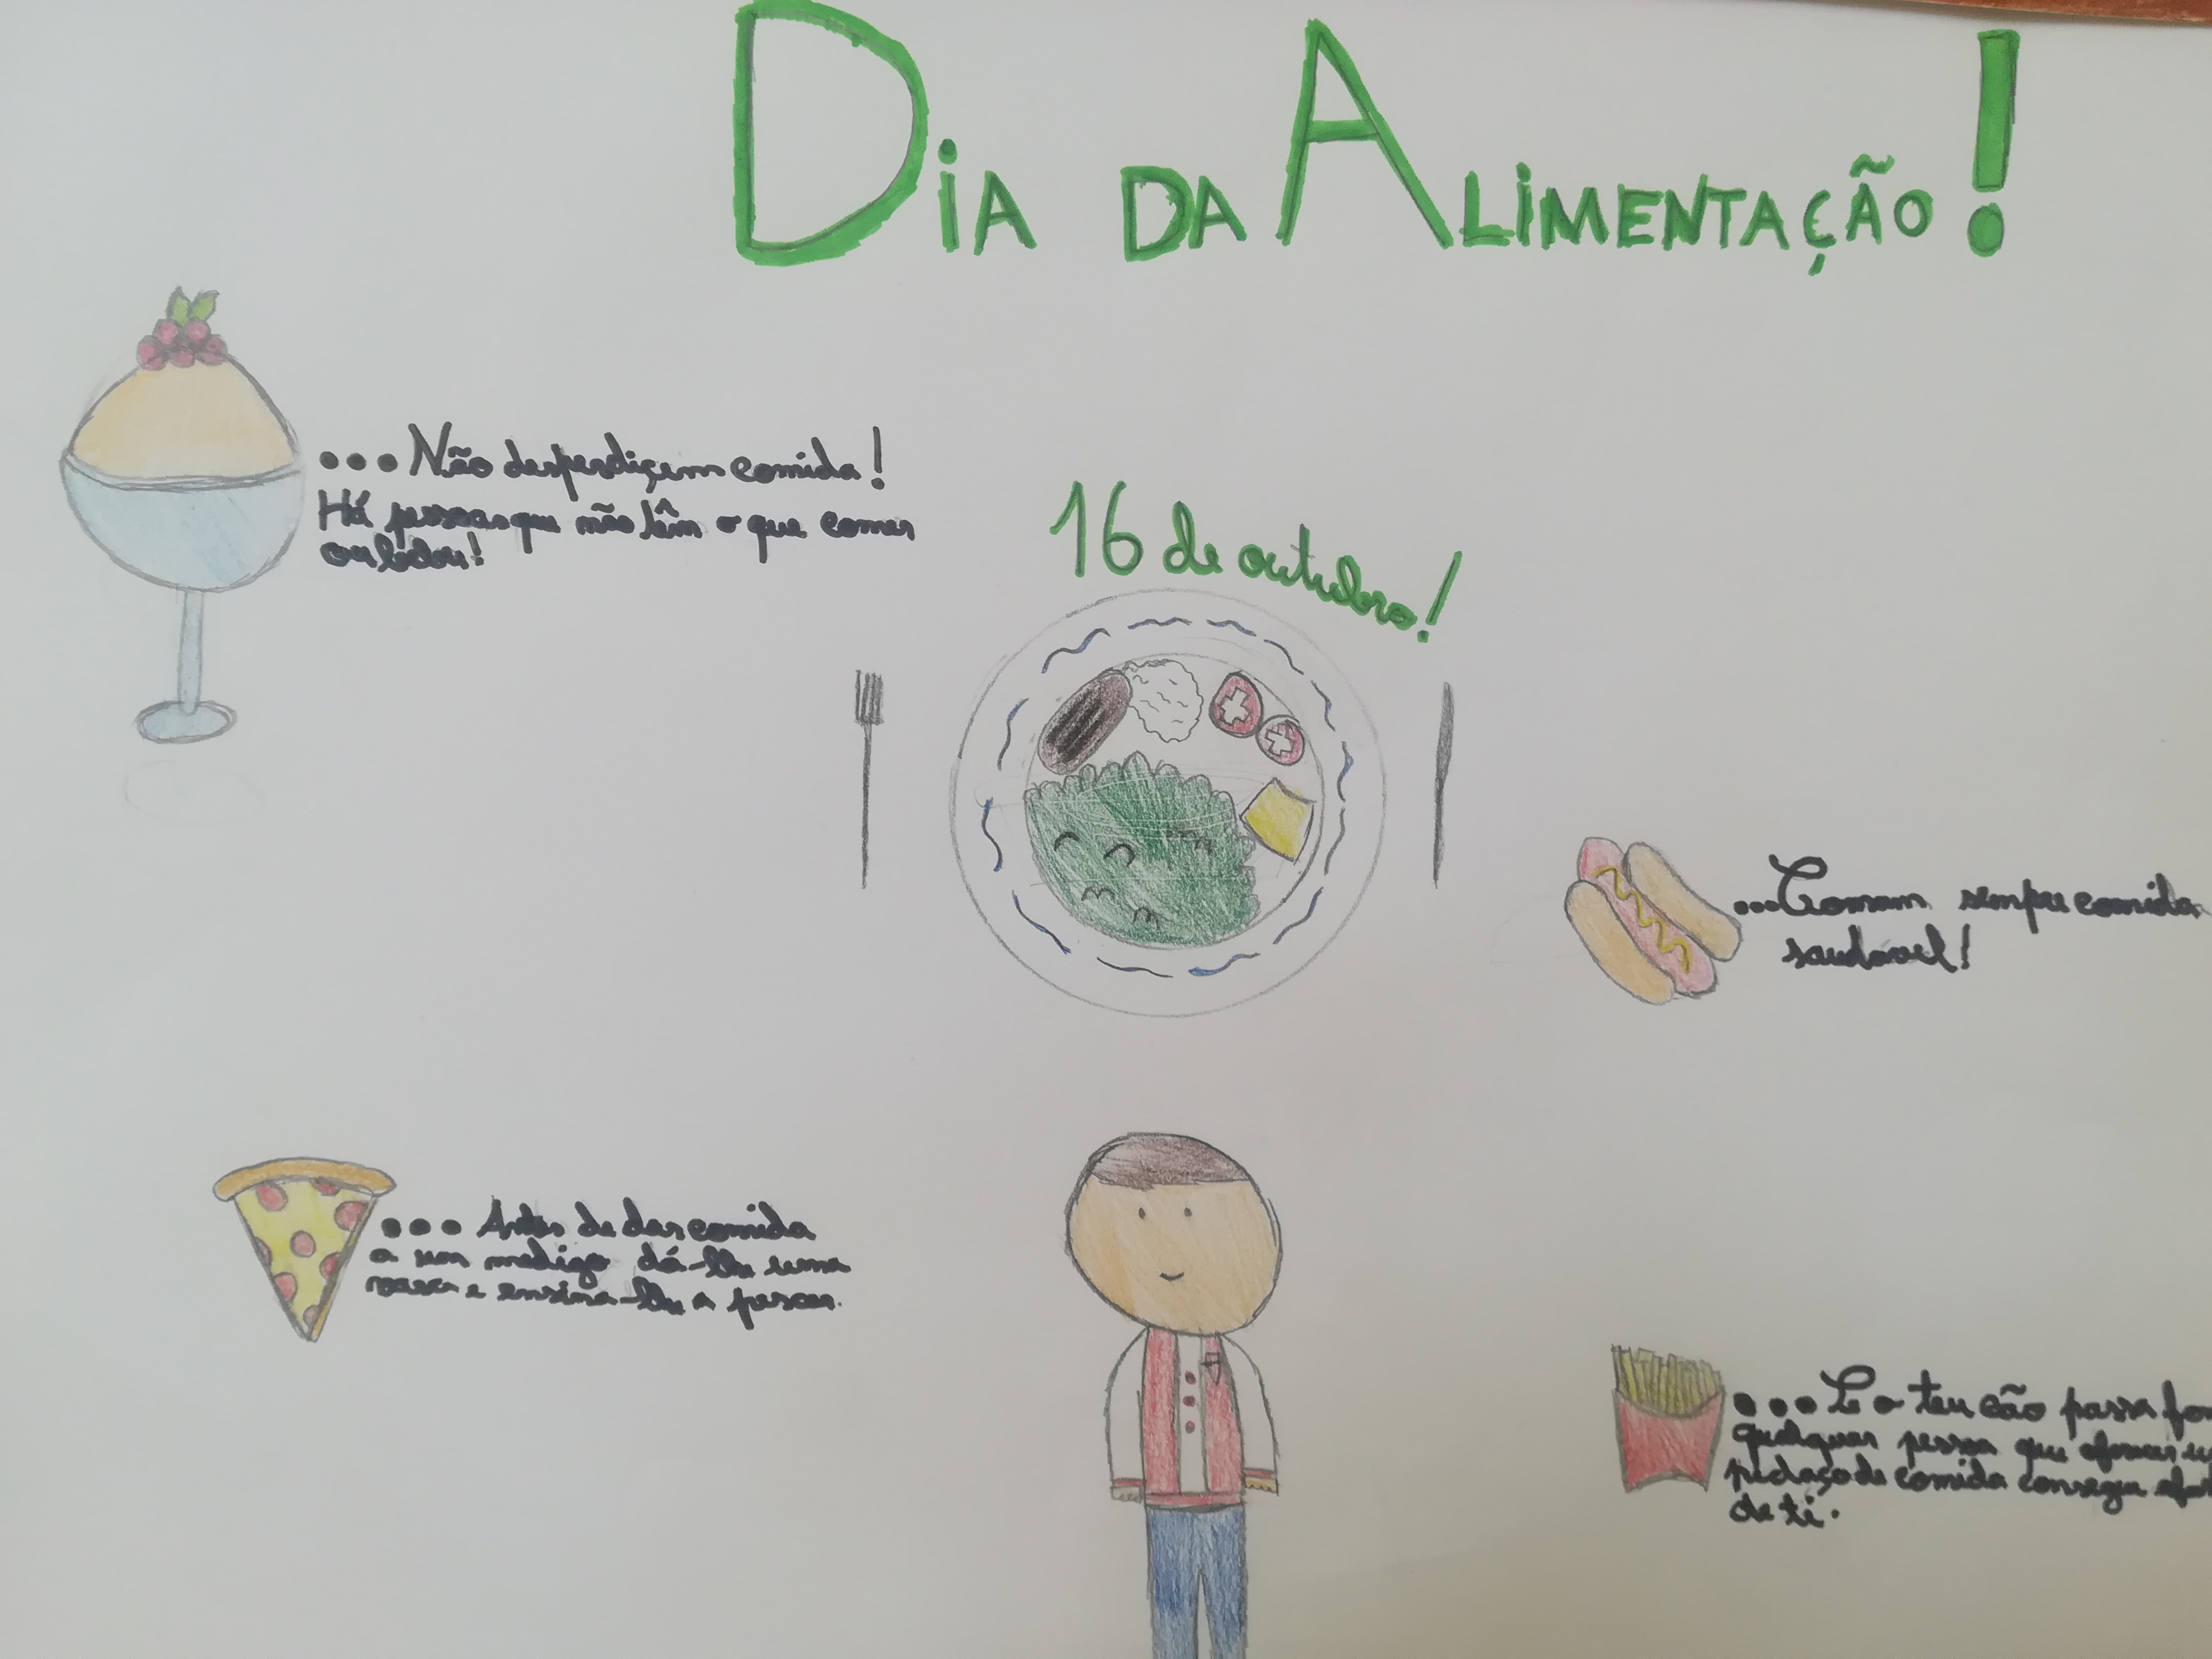 DIA DA ALIMENTAÇÃO!
...Não desperdiçem comida!
Há pessoas que não têm o que comer
ou beber!
16 de outubro!
...Comam sempre comida
saudável!
... Antes de dar comida
a um medigo dá-lhe uma
e ensina-lhe a pescar.
...Se o teu cão passa
qualquer pessoa que oferecer
pedaço de comida consegue
de ti.